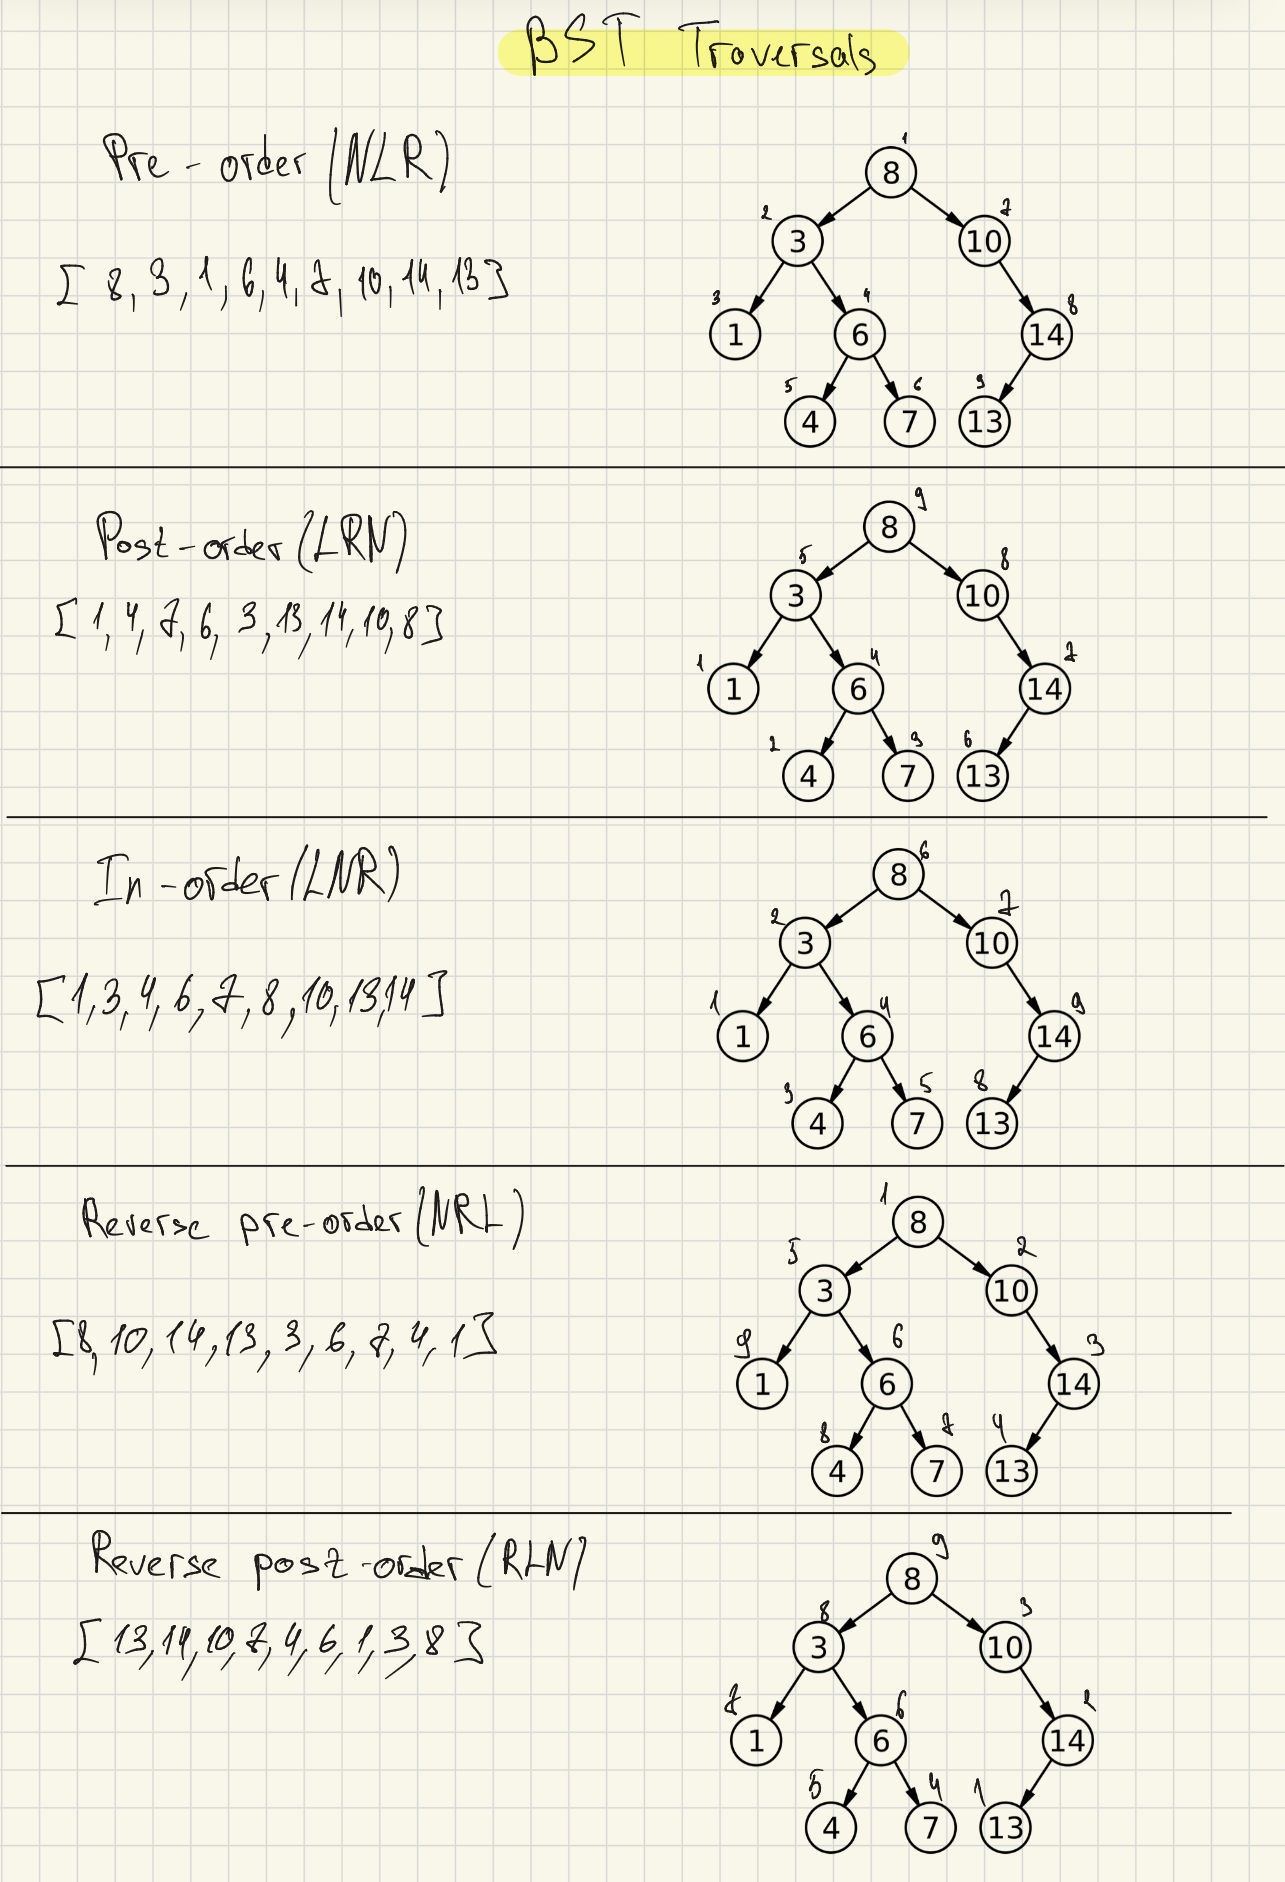 BST Traversals
Pre-order (NLR)
[8, 3, 1, 6, 4, 7, 10, 14, 13]
1
8
2
7
3
10
3
4
8
1
6
14
5
6
9
4
7
13
Post-order (LRN)
[1, 4, 7, 6, 3, 13, 14, 10, 8]
9
8
5
8
3
10
1
4
7
1
6
14
2
3
6
4
7
13
In-order (LNR)
[1, 3, 4, 6, 7, 8, 10, 13, 14]
6
8
2
7
3
10
1
4
9
1
6
14
3
5
8
4
7
13
Reverse pre-order (NRL)
[8, 10, 14, 13, 3, 6, 7, 4, 1]
1
8
5
2
3
10
9
6
3
1
6
14
8
7
4
4
7
13
Reverse post-order (RLN)
[13, 14, 10, 7, 4, 6, 1, 3, 8]
9
8
8
3
3
10
7
6
2
1
6
14
5
4
1
4
7
13